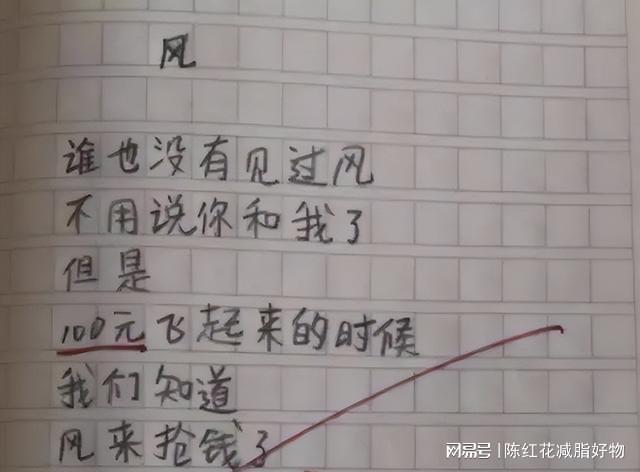 风
谁也没有见过风
不用说你和我了
但是
100元飞起来的时候
我们知道
风来抢钱了
网易号 | 陈红花减脂好物